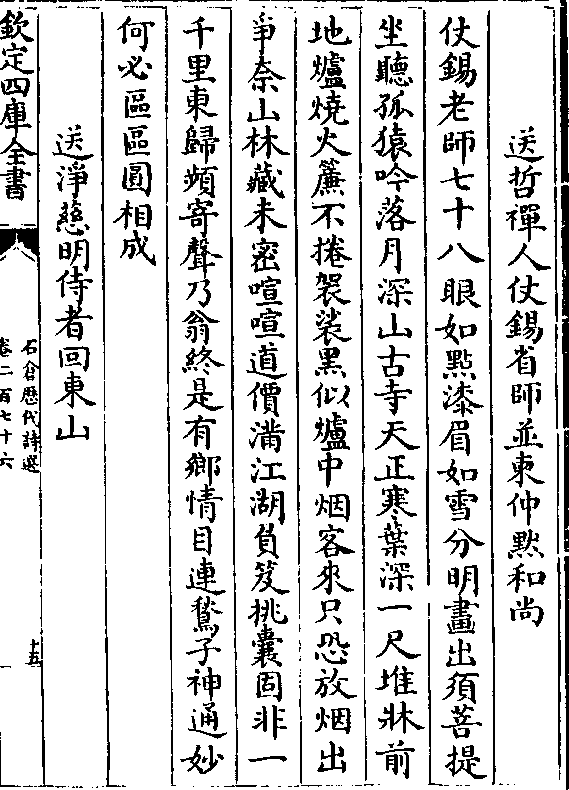 送哲禪人仗錫省師並柬仲黙和尚
仗錫老師七十八眼如㸃漆眉如雪分明畫出須菩提
坐聽孤猿吟落月深山古寺天正寒葉深一尺堆牀前
地爐燒火簾不捲袈裟黑似爐中烟客來只恐放烟出
爭奈山林藏未密喧喧道價滿江湖負笈挑囊固非一
千里東歸頻寄聲乃翁終是有鄉情目連鶖子神通妙
何必區區圓相成
送淨慈明侍者回東山
欽定四庫全書
石倉歴代詩選
卷二百七十六
十五